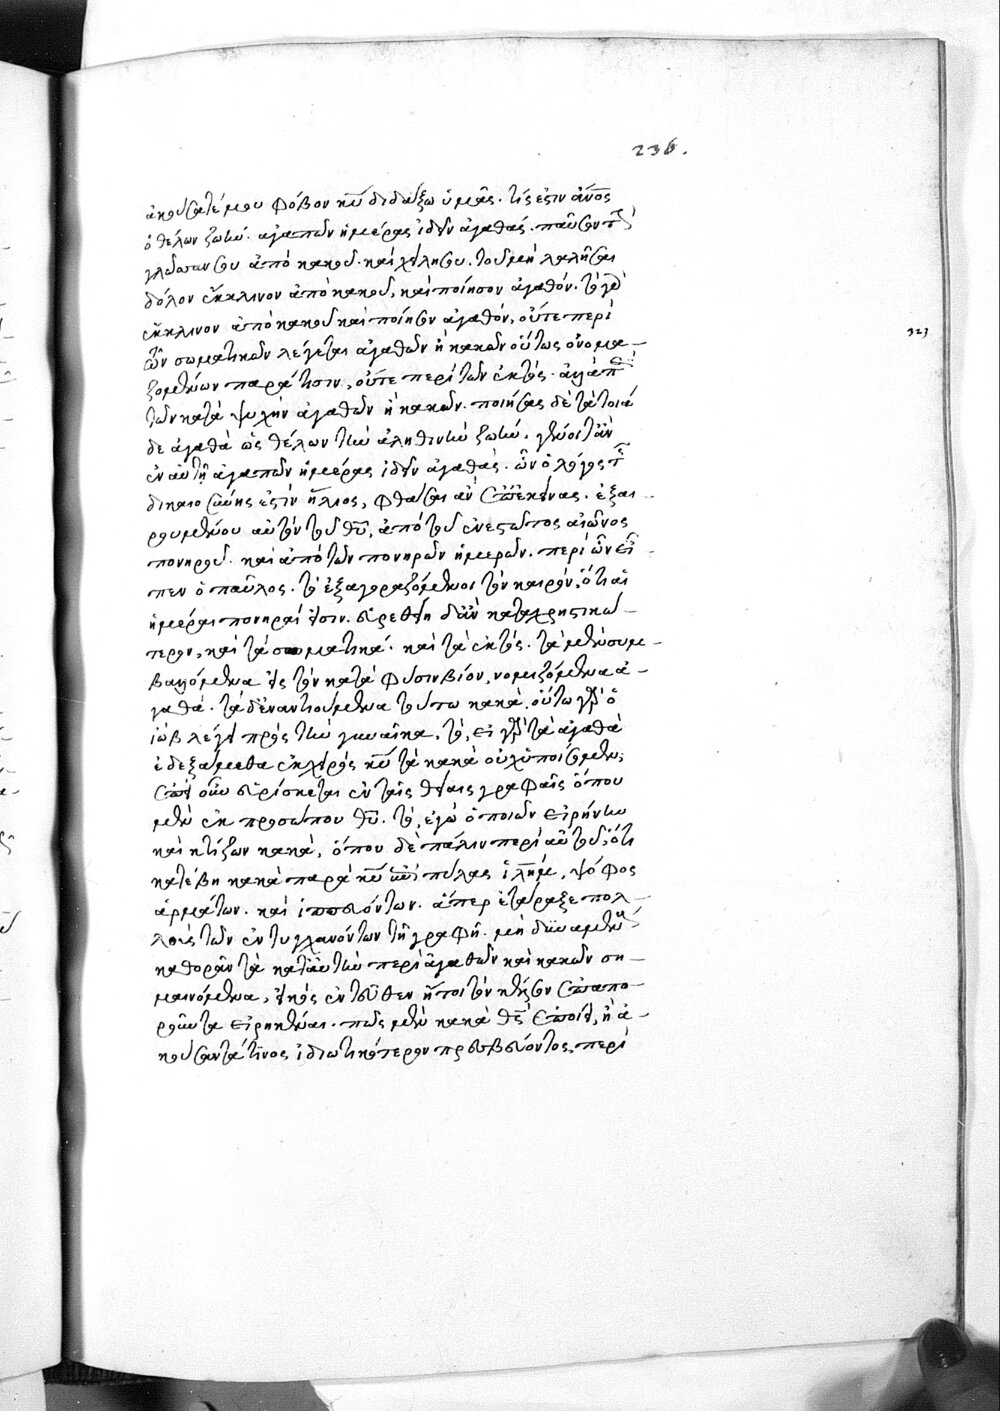 236.
ἀκούσατέ μου φόβον κυ διδάξω ὑμᾶς. τίς ἐστιν ἄνος
ὁ θέλων ζωήν. ἀγαπῶν ἡμέρας ἰδεῖν ἀγαθάς. παῦσον τὴν
γλῶσσαν σου ἀπὸ κακοῦ. καὶ χείλη σου. τοῦ μὴ λαλῆσαι
δόλον ἔκκλινον ἀπὸ κακοῦ, καὶ ποίησον ἀγαθόν. τὸ γὰρ
ἔκκλινον ἀπὸ κακοῦ καὶ ποίησον ἀγαθόν, οὔτε περὶ
τῶν σωματικῶν λέγεται ἀγαθῶν ἢ κακῶν οὕτως ὀνομα-
ζομένων παρά τισιν, οὔτε περὶ τῶν ἐκτός. ἀλλὰ περὶ
τῶν κατὰ ψυχὴν ἀγαθῶν ἢ κακῶν. ποιήσας δὲ τὰ τοιά
δε ἀγαθὰ ὡς θέλων τὴν ἀληθινὴν ζωήν, γένοιτ' ἂν
ἐν αὐτῇ ἀγαπῶν ἡμέρας ἰδεῖν ἀγαθάς. ὧν ὁ λόγος τῆς
δικαιοσύνης ἐστὶν ἥλιος, φθάσαι ἂν ἐπ' ἐκείνας. ἐξαι-
ρουμένου αὐτὸν τοῦ θυ, ἀπὸ τοῦ ἐνεστῶτος αἰῶνος
πονηροῦ. καὶ ἀπὸ τῶν πονηρῶν ἡμερῶν. περὶ ὧν εἶ-
πεν ὁ παῦλος. τὸ ἐξαγοραζόμενοι τὸν καιρόν, ὅτι αἱ
ἡμέραι πονηραί εἰσιν. εὑρεθείη δ' ἂν καταχρηστικώ-
τερον, καὶ τὰ σωματικά. καὶ τὰ ἐκτός. τὰ μὲν συμ-
βαλλόμενα εἰς τὸν κατὰ φύσιν βίον, νομιζόμενα ἀ-
γαθά. τὰ δ' ἐναντιούμενα τούτω κακά. οὕτω γὰρ ὁ
ἰὼβ λέγει πρὸς τὴν γυναῖκα, τὸ, εἰ γὰρ τὰ ἀγαθὰ
ἐδεξάμεθα ἐκ χειρὸς κυ τὰ κακὰ οὐχ ὑποίσομεν,
ἐπεὶ οὖν εὑρίσκεται ἐν ταῖς θείαις γραφαῖς ὅπου
μὲν ἐκ προσώπου θυ. τὸ, ἐγὼ ὁ ποιῶν εἰρήνην
καὶ κτίζων κακά, ὅπου δὲ πάλιν περὶ αὐτοῦ, ὅτι
κατέβη κακὰ παρὰ κυ ἐπὶ πύλας ἱλημ, ψόφος
ἁρμάτων. καὶ ἱππευόντων. ἅπερ ἐτάραξε πολ-
λοὺς τῶν ἐντυγχανόντων τῇ γραφῇ. μὴ δυναμένους
καθορᾶν τὰ κατ' αὐτὴν περὶ ἀγαθῶν καὶ κακῶν ση-
μαινόμενα, εἰκὸς ἐντεῦθεν ἤτοι τὸν κέλσον ἐπαπο-
ροῦντα εἰρηκέναι. πῶς μὲν κακὰ θς ἐποίει, ἢ ἀ-
κούσαντά τινος ἰδιωτικότερον πρεσβεύοντος περὶ
323